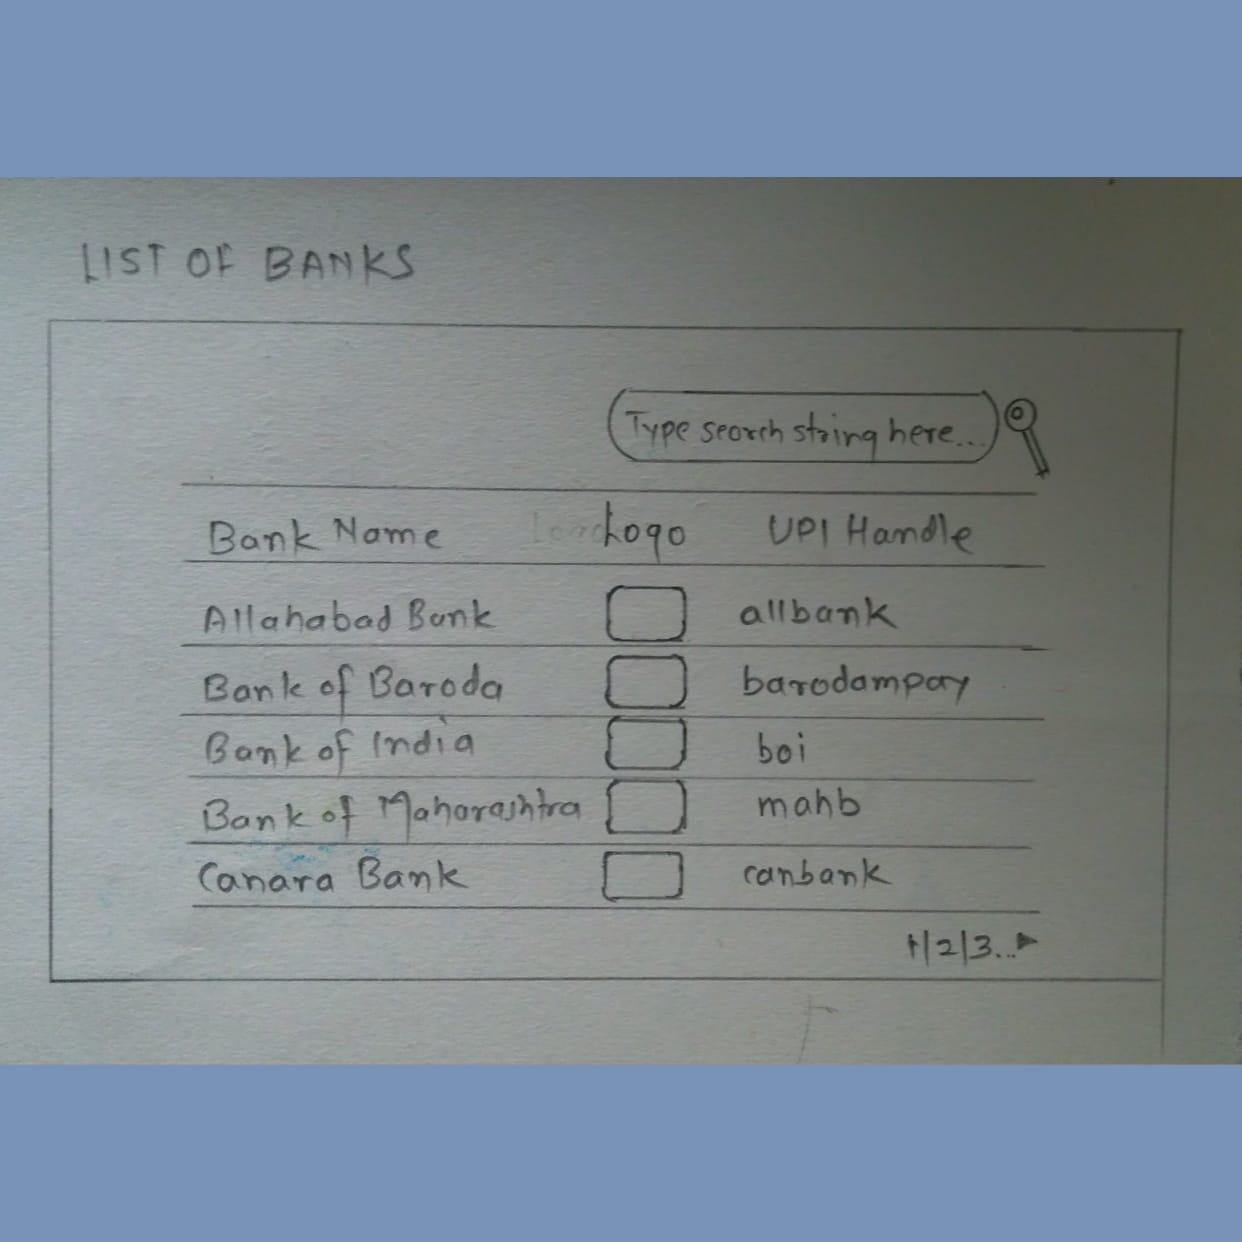 LIST OF BANKS
Type search string here...
Bank Name Logo UPI Handle
Allahabad Bank allbank
Bank of Baroda barodampay
Bank of India boi
Bank of Maharashtra mahb
Canara Bank canbank
1/2/3...